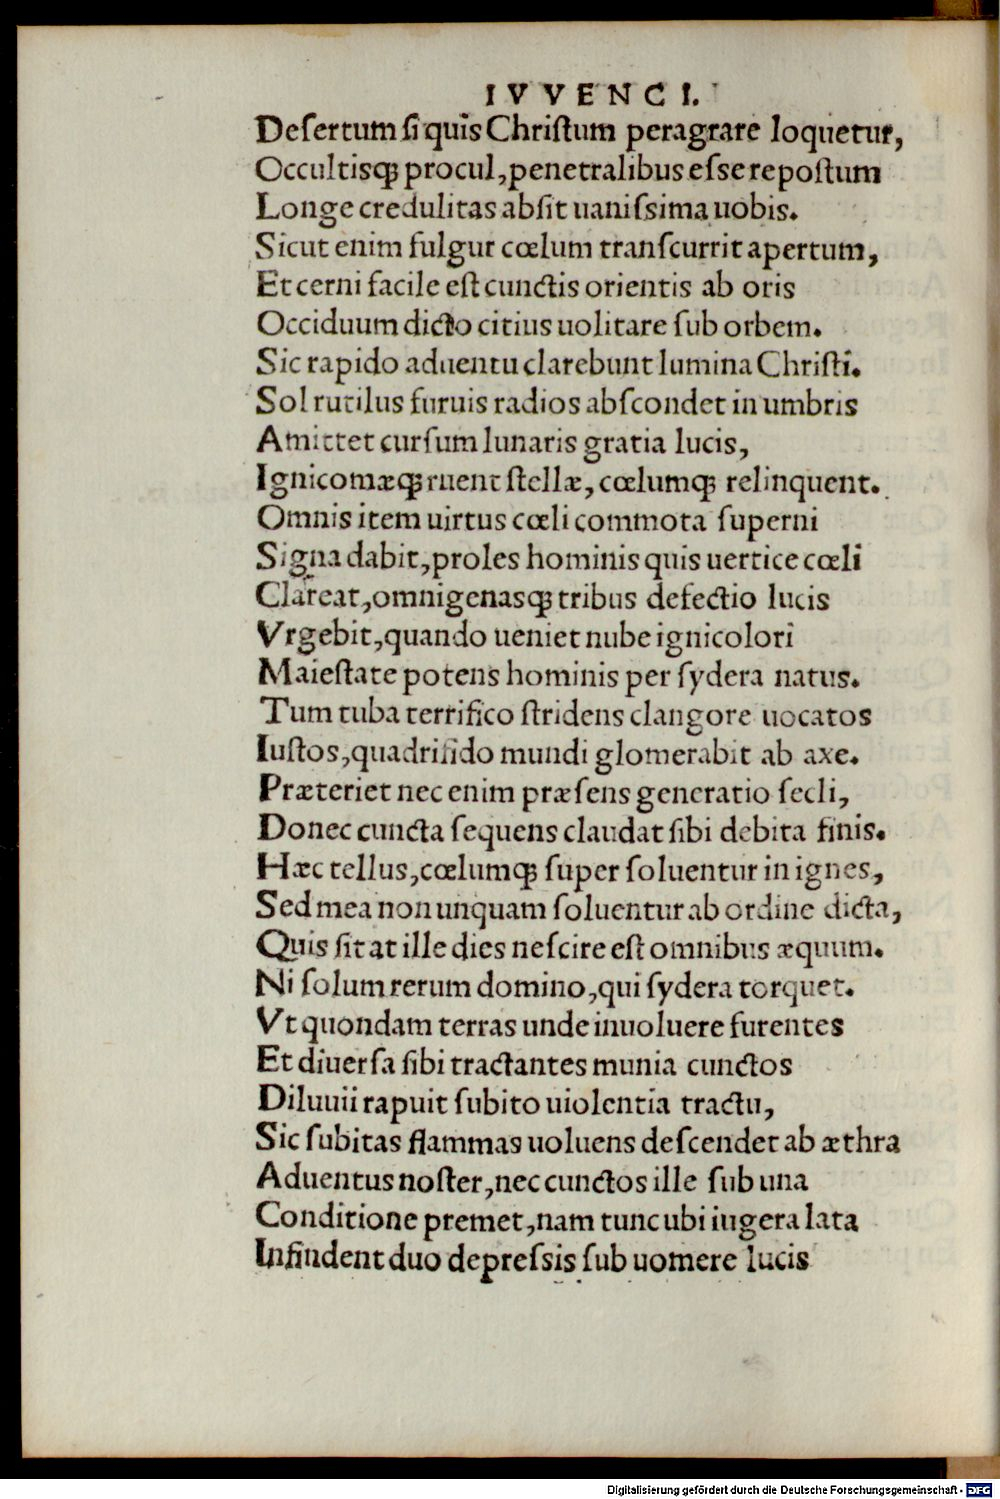 IVVENCI.
Deſertum ſi quis Chriſtum peragrare loquetur,
Occultisqꝫ procul, penetralibus eſse repoſtum
Longe credulitas abſit uaniſsima uobis.
Sicut enim fulgur cœlum tranſcurrit apertum,
Et cerni facile eſt cunctis orientis ab oris
Occiduum dicto citius uolitare ſub orbem.
Sic rapido aduentu clarebunt lumina Chriſti.
Sol rutilus furuis radios abſcondet in umbris
Amittet curſum lunaris gratia lucis,
Ignicomæqꝫ ruent ſtellæ, cœlumqꝫ relinquent.
Omnis item uirtus cœli commota ſuperni
Signa dabit, proles hominis quis uertice cœli
Clareat, omnigenasqꝫ tribus defectio lucis
Vrgebit, quando ueniet nube ignicolori
Maieſtate potens hominis per ſydera natus.
Tum tuba terrifico ſtridens clangore uocatos
Iuſtos, quadrifido mundi glomerabit ab axe.
Præteriet nec enim præſens generatio ſecli,
Donec cuncta ſequens claudat ſibi debita finis.
Hæc tellus, cœlumqꝫ ſuper ſoluentur in ignes,
Sed mea non unquam ſoluentur ab ordine dicta,
Quis ſit at ille dies neſcire eſt omnibus æquum.
Ni ſolum rerum domino, qui ſydera torquet.
Vt quondam terras unde inuoluere furentes
Et diuerſa ſibi tractantes munia cunctos
Diluuii rapuit ſubito uiolentia tractu,
Sic ſubitas flammas uoluens deſcendet ab æthra
Aduentus noſter, nec cunctos ille ſub una
Conditione premet, nam tunc ubi iugera lata
Infindent duo depreſsis ſub uomere lucis
Digitalisierung gefördert durch die Deutsche Forschungsgemeinschaft - DFG